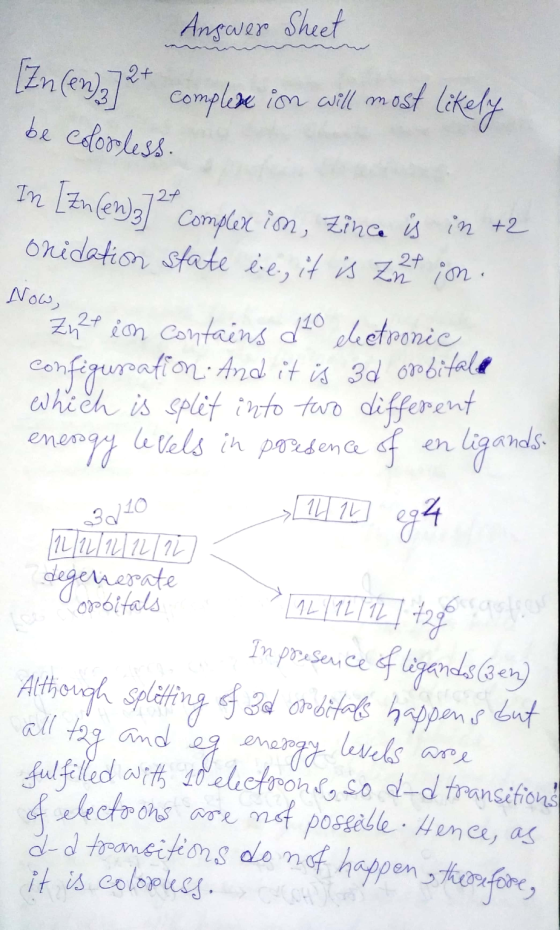 Answer Sheet
[Zn(en)3]2+ complex ion will most likely
be colorless.
In [Zn(en)3]2+ complex ion, Zinc is in +2
oxidation state i.e., it is Zn2+ ion.
Now,
Zn2+ ion contains d10 electronic
configuration. And it is 3d orbital
which is split into two different
energy levels in presence of en ligands.
3d10
1L 1L 1L 1L 1L
degenerate
orbitals
1L 1L eg4
1L 1L 1L t2g6
In presence of ligands (3 en)
Although splitting of 3d orbitals happens but
all t2g and eg energy levels are
fulfilled with 10 electrons, so d-d transitions
of electrons are not possible. Hence, as
d-d transitions do not happen, therefore,
it is colorless.